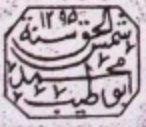 ١٢٩٥
شمس الحق سنة
محمد
ابو طيب